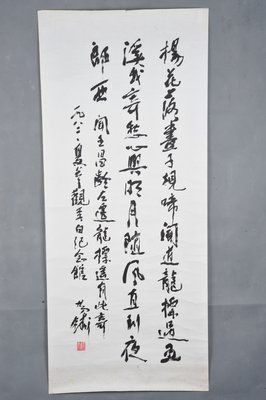 楊花落盡子規啼聞道龍標過五
溪我寄愁心與明月隨風直到夜
郎西 聞王昌齡左遷龍標遙有此寄
一九八二夏觀李白紀念館